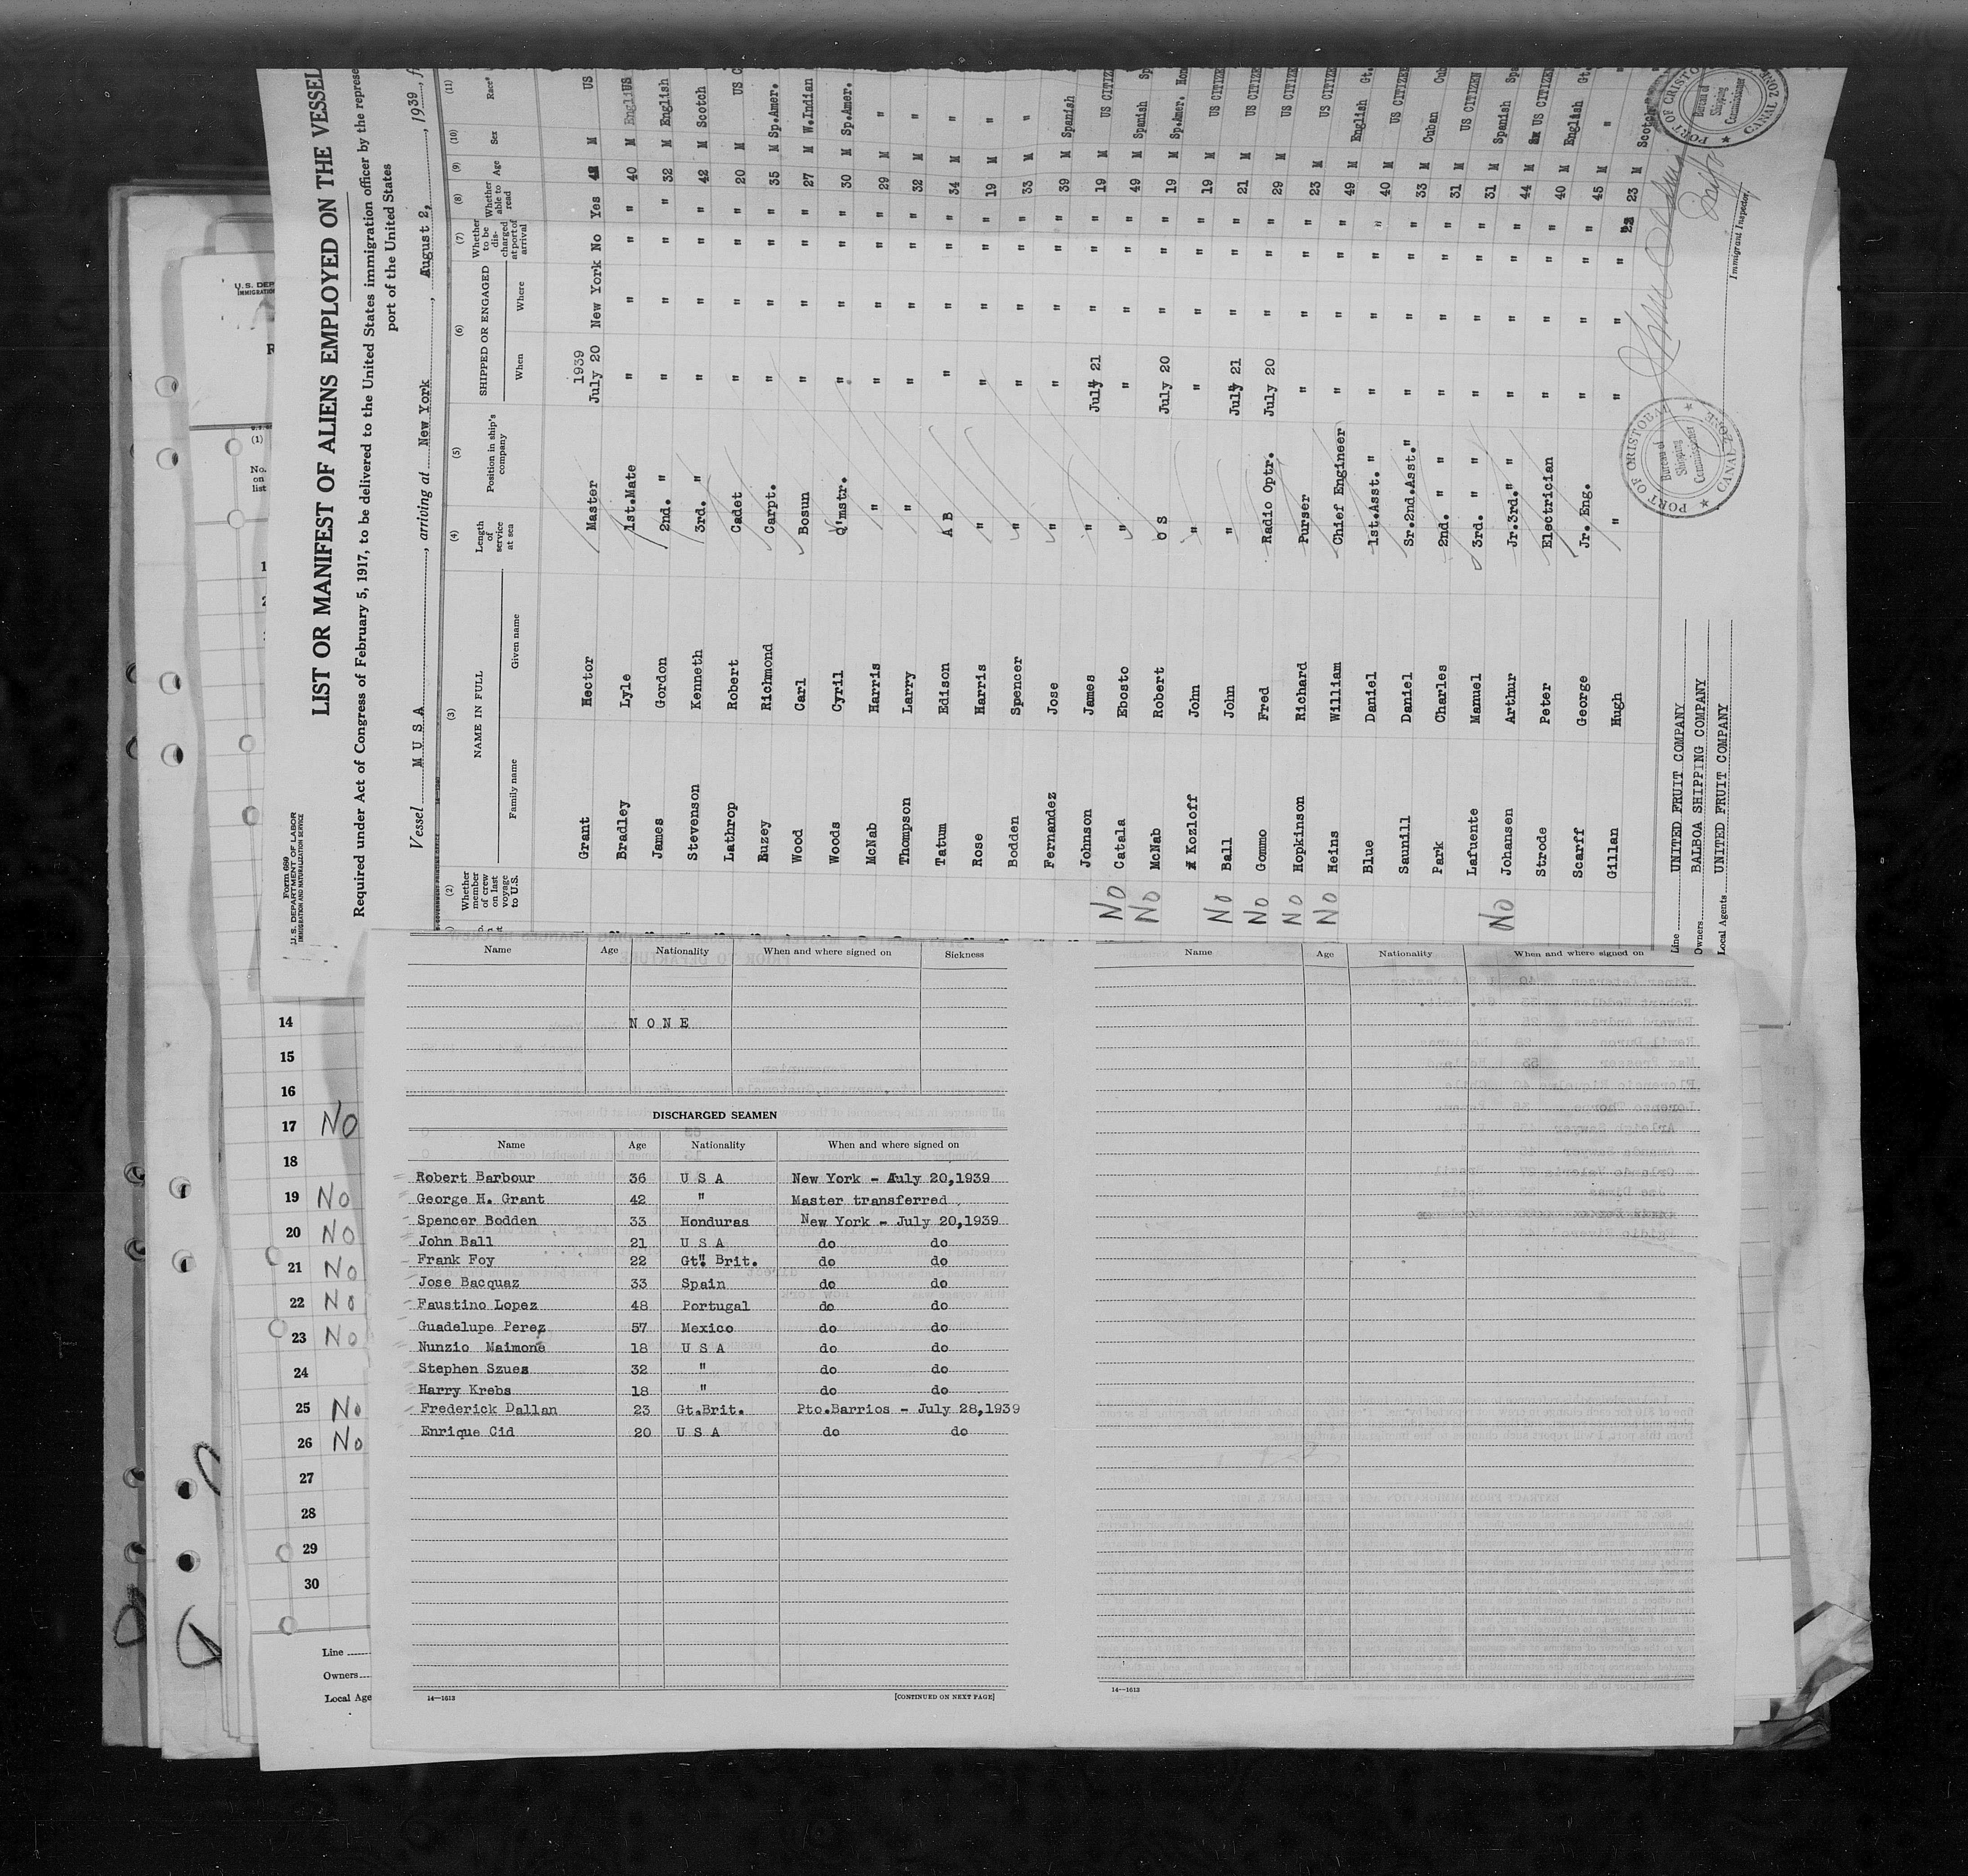 Form 689
U. S. DEPARTMENT OF LABOR
IMMIGRATION AND NATURALIZATION SERVICE
LIST OR MANIFEST OF ALIENS EMPLOYED ON THE VESSEL
Required under Act of Congress of February 5, 1917, to be delivered to the United States immigration officer by the
port of the United States
Vessel M U S A, arriving at New York, August 2, 1939,
(2) (3) (4) (5) (6) (7) (8) (9) (10) (11)
Whether member of crew on last voyage to U.S. NAME IN FULL Family name Given name Length of service at sea Position in ship's company SHIPPED OR ENGAGED When Where Whether to be discharged at port of arrival Whether able to read Age Sex Race
1939
Grant Hector Master July 20 New York No Yes M US
Bradley Lyle 1st.Mate " " " " 40 M English
James Gordon 2nd. " " " " " 32 M English
Stevenson Kenneth 3rd. " " " " " 42 M Scotch
Lathrop Robert Cadet " " " " 20 M US C
Euzey Richmond Carpt. " " " " 35 M Sp.Amer.
Wood Carl Bosun " " " " 27 M W.Indian
Woods Cyril Q'mstr. " " " " 30 M Sp.Amer.
McNab Harris " " " " " 29 M "
Thompson Larry " " " " " 32 M "
Tatum Edison A B " " " " 34 M "
Rose Harris " " " " " 19 M "
Bodden Spencer " " " " " 33 M "
Fernandez Jose " " " " " 39 M Spanish
Johnson James " July 21 " " " 19 M US CITIZ
No Catala Ebosto " " " " " 49 M Spanish Sp
No McNab Robert O S July 20 " " " 19 M Sp.Amer. Hon
Kozloff John " " " " " 19 M US CITIZE
No Ball John " July 21 " " " 21 M US CITIZE
No Gommo Fred Radio Optr. July 20 " " " 29 M US CITIZE
No Hopkinson Richard Purser " " " " 23 M US CITIZE
No Heins William Chief Engineer " " " " 49 M English Gt.
Blue Daniel 1st.Asst. " " " " " 40 M US CITIZEN
Saunill Daniel Sr.2nd.Asst." " " " " 33 M Cuban Cub
Park Charles 2nd. " " " " " " 31 M US CITIZEN
Lafuente Manuel 3rd. " " " " " " 31 M Spanish Spa
No Johansen Arthur Jr.3rd." " " " " " 44 M US CITIZEN
Strode Peter Electrician " " " " 40 M English Gt.
Scarff George Jr. Eng. " " " " 45 M " "
Gillan Hugh " " " " 23 M Scotch
Line UNITED FRUIT COMPANY
Owners BALBOA SHIPPING COMPANY
Local Agents UNITED FRUIT COMPANY
Immigrant Inspector.
PORT OF CRISTOBAL
Bureau of Shipping Commissioner
CANAL ZONE
PORT OF CRISTOBAL
Bureau of Shipping Commissioner
CANAL ZONE
U. S. DEP
IMMIGRATION
(1)
No. on list
14
15
16
17 No
18
19 No
20 No
21 No
22 No
23 No
24
25 No
26 No
27
28
29
30
Line
Owners
Local Age
Name Age Nationality When and where signed on Sickness
N O N E
DISCHARGED SEAMEN
Name Age Nationality When and where signed on
Robert Barbour 36 U S A New York - July 20,1939
George H. Grant 42 " Master transferred
Spencer Bodden 33 Honduras New York - July 20,1939
John Ball 21 U S A do do
Frank Foy 22 Gt. Brit. do do
Jose Bacquaz 33 Spain do do
Faustino Lopez 48 Portugal do do
Guadelupe Perez 57 Mexico do do
Nunzio Maimone 18 U S A do do
Stephen Szues 32 " do do
Harry Krebs 18 " do do
Frederick Dallan 23 Gt.Brit. Pto.Barrios - July 28,1939
Enrique Cid 20 U S A do do
14—1613
[CONTINUED ON NEXT PAGE]
Name Age Nationality When and where signed on
14—1613